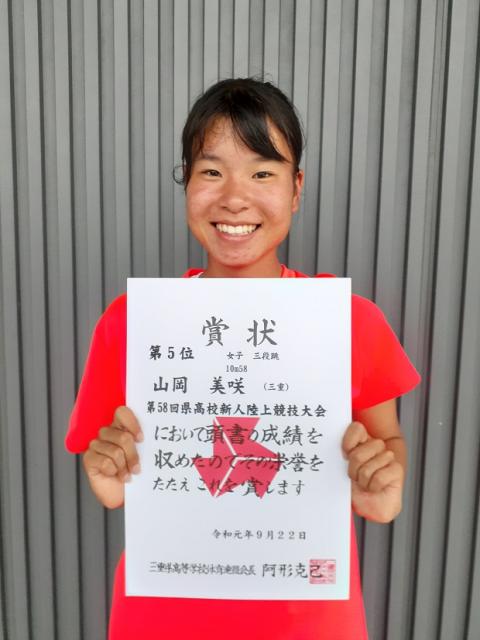 賞状
第5位 女子 三段跳
10m58
山岡 美咲 (三重)
第58回県高校新人陸上競技大会
において頭書の成績を
収めたのでその栄誉を
たたえこれを賞します
令和元年9月22日
三重県高等学校体育連盟会長 阿形克己